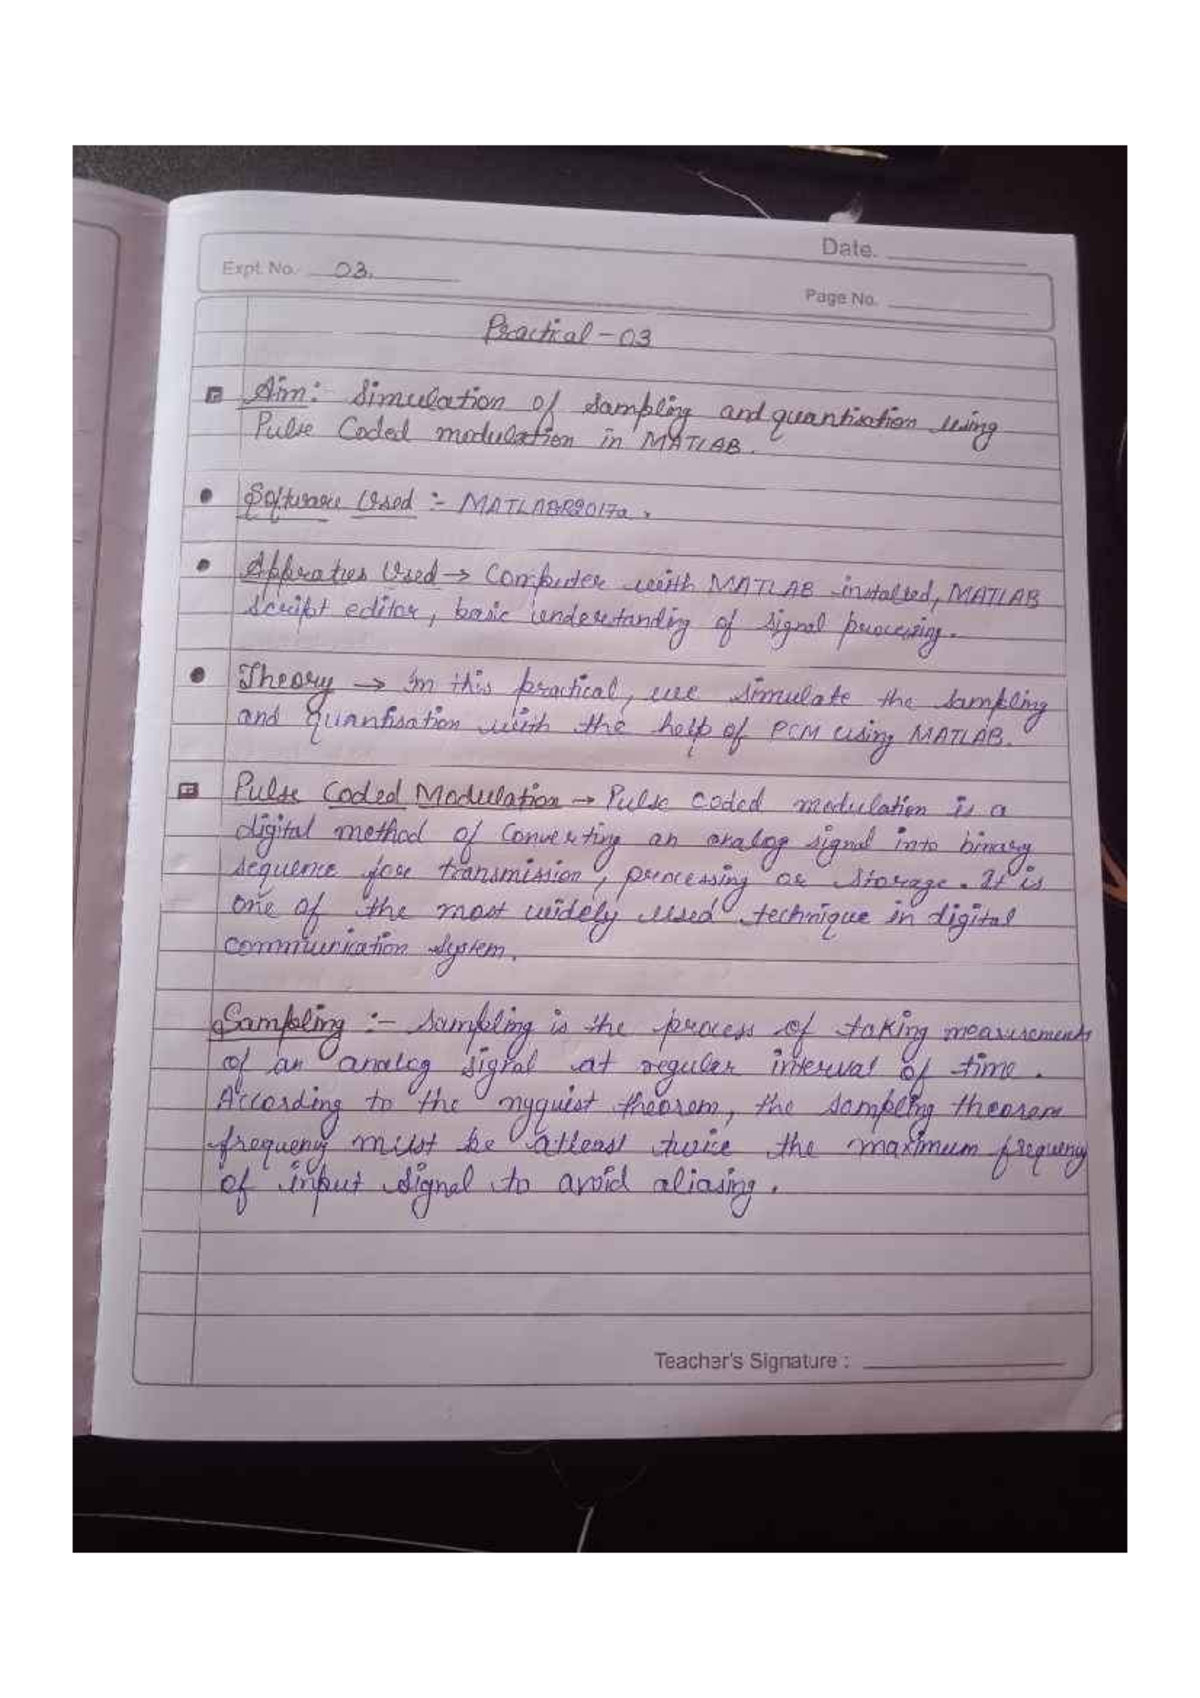 Date.
Expt. No. 03.
Page No.
Practical - 03
Aim:- Simulation of Sampling and quantisation using
Pulse Coded modulation in MATLAB.
Software Used :- MATLABR2017a.
Appraties Used → Computer with MATLAB installed, MATLAB
Script editor, basic understanding of signal processing.
Theory → In this practical, we simulate the sampling
and quantisation with the help of PCM using MATLAB.
Pulse Coded Modulation → Pulse coded modulation is a
digital method of Converting an analog signal into binary
sequence for transmission, processing or storage. It is
one of the most widely used technique in digital
communication system.
Sampling :- Sampling is the process of taking measurements
of an analog signal at regular interval of time.
According to the nyquist theorem, the sampling theorem
frequency must be atleast twice the maximum frequency
of input signal to avoid aliasing.
Teacher's Signature :